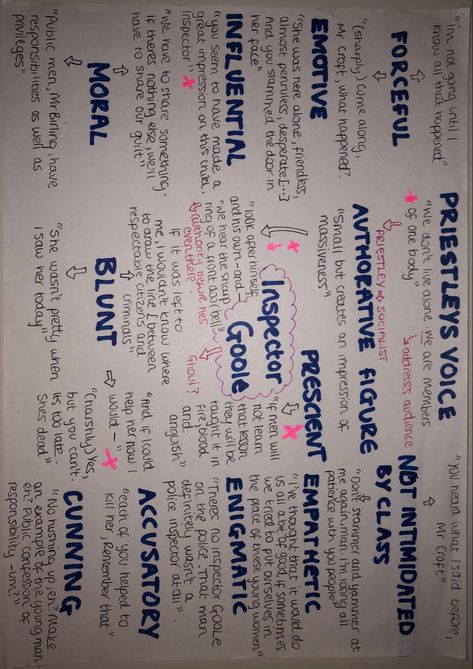 "i'm not going until I
know all that happened"
FORCEFUL
"(sharply) Come along,
Mr Croft, what happened?
EMOTIVE
"She was here alone, friendless,
almost penniless, desperate [...]
And you slammed the door in
her face"
INFLUENTIAL
"you seem to have made a
great impression on this child,
Inspector"
"We have to share something.
If there's nothing else, we'll
have to share our guilt"
MORAL
"Public men, Mr Birling, have
responsibilities as well as
privileges"
PRIESTLEYS VOICE
"We don't live alone. We are members
of one body"
addresses audience
PRIESTLEY → SOCIALIST
AUTHORATIVE FIGURE
"Small but creates an impression of
massiveness"
Inspector
Goole
Ghoul?
"look after himself
and his own-and-
"we hear the sharp
ring of a front door bell"
authority before hes
even there
if it was left to
me, I wouldn't know where
to draw the line between
respectable citizens and
criminals"
BLUNT
"She wasn't pretty when
I saw her today"
"(harshly) Yes,
but you can't.
its too late.
Shes dead"
"and if I could
help her now I
would-"
PRESCIENT
"If men will
not learn
that lesson,
they will be
taught it in
fire, blood
and
anguish"
NOT INTIMIDATED
BY CLASS
"you heard what I said before,
Mr Croft"
"Don't stammer and yammer at
me again, man. I'm losing all
patience with you people"
EMPATHETIC
"I've thought that it would do
us all a bit of good if sometimes
we tried to put ourselves in
the place of these young women"
ENIGMATIC
"Theres no inspector GOOLE
on the police. That man
definitely wasn't a
police inspector at all"
ACCUSATORY
"each of you helped to
kill her. Remember that"
CUNNING
"No hushing up, eh? Make
an example of the young man,
eh? Public confession of
responsibility - um?"